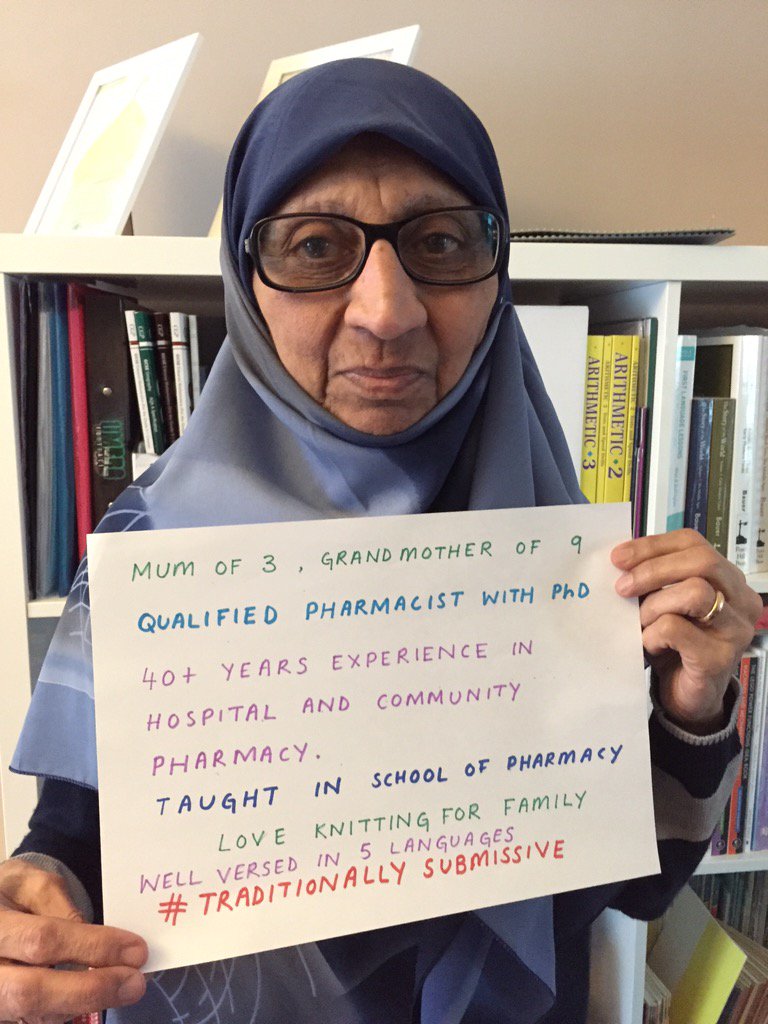 MUM OF 3, GRANDMOTHER OF 9
QUALIFIED PHARMACIST WITH PhD
40+ YEARS EXPERIENCE IN
HOSPITAL AND COMMUNITY
PHARMACY.
TAUGHT IN SCHOOL OF PHARMACY
LOVE KNITTING FOR FAMILY
WELL VERSED IN 5 LANGUAGES
# TRADITIONALLY SUBMISSIVE
ARITHMETIC 3
ARITHMETIC 2
FIRST LANGUAGE LESSONS
Bauer
Bauer